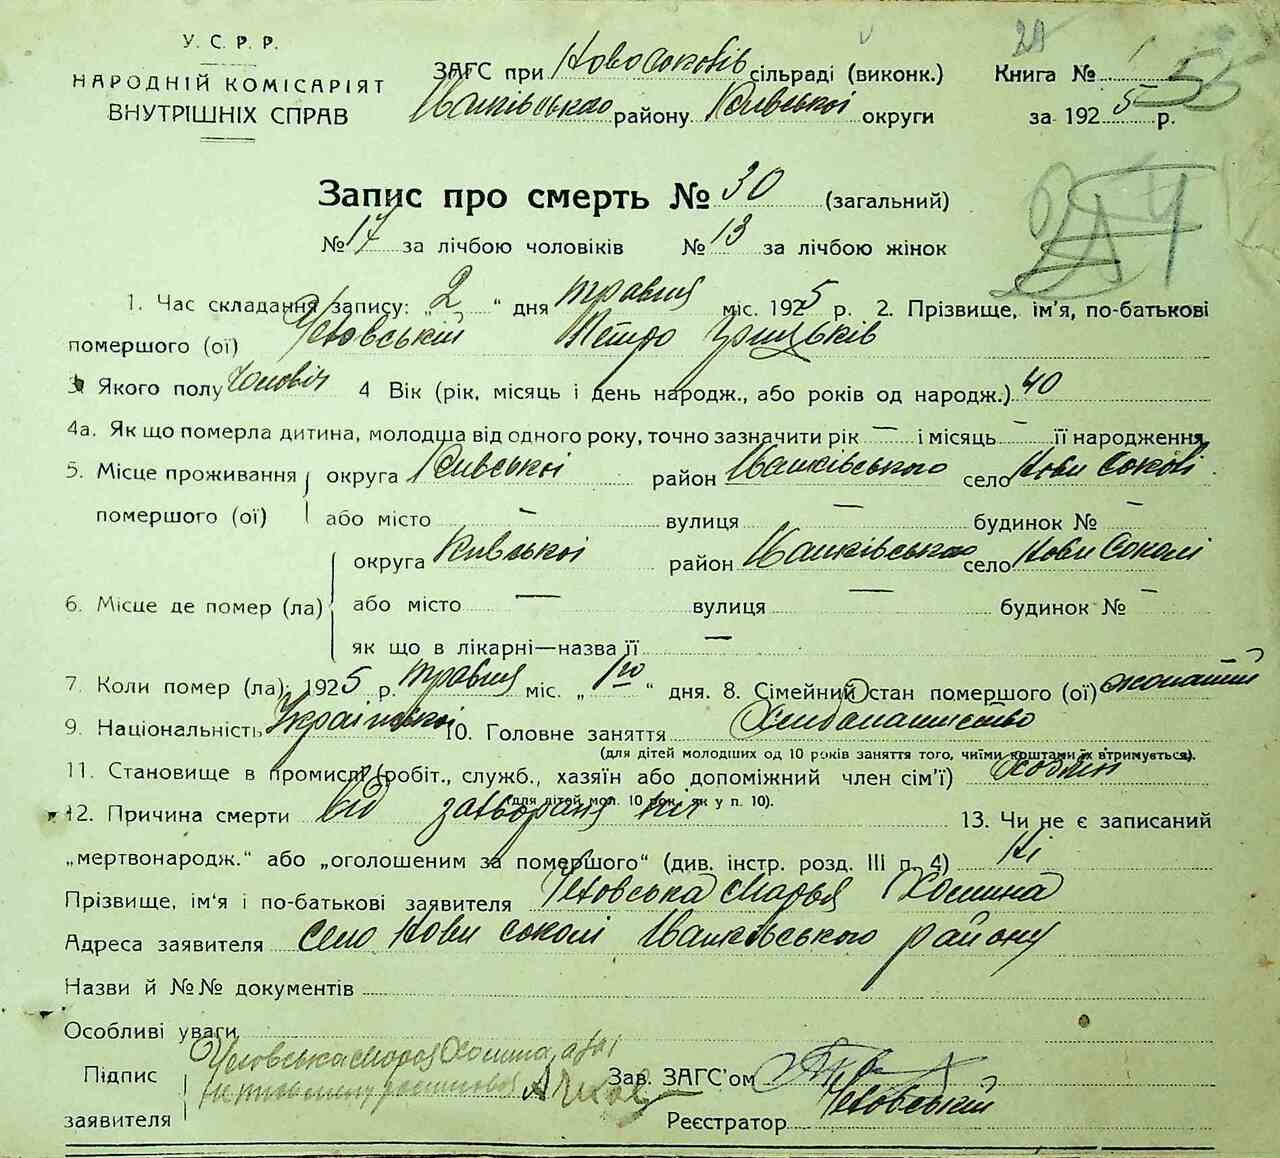 У. С. Р. Р.
НАРОДНІЙ КОМІСАРІЯТ
ВНУТРІШНІХ СПРАВ
ЗАГС при Новосоколів сільраді (виконк.)
Іванківського району Київської округи
Книга №
за 1925 р.
55
Запис про смерть № 30 (загальний)
№ 17 за лічбою чоловіків № 13 за лічбою жінок
1. Час складання запису: „2“ дня травня міс. 1925 р. 2. Прізвище, ім'я, по-батькові
помершого (ої) Чеховський Петро Грицьків
3. Якого полу Чоловіч 4 Вік (рік, місяць і день народж., або років од народж.) 40
4а. Як що померла дитина, молодша від одного року, точно зазначити рік — і місяць — її народження
5. Місце проживання помершого (ої) округа Київської район Іванківського село Нови Соколі
або місто — вулиця — будинок № —
6. Місце де помер (ла) округа Київської район Іванківського село Нови Соколі
або місто — вулиця — будинок № —
як що в лікарні—назва її —
7. Коли помер (ла): 1925 р. травня міс. „1го“ дня. 8. Сімейний стан помершого (ої) жонатий
9. Національність Української 10. Головне заняття Хлибопашество
(для дітей молодших од 10 років заняття того, чиїми коштами їх втримується).
11. Становище в промислі (робіт., служб., хазяїн або допоміжний член сім'ї) Хозяїн
(для дітей мол. 10 рок. як у п. 10).
12. Причина смерти від 13. Чи не є записаний
„мертвонародж.“ або „оголошеним за помершого“ (див. інстр. розд. III п. 4) Ні
Прізвище, ім'я і по-батькові заявителя Чеховська Марья Хомина
Адреса заявителя село Нови соколі Іванківського району
Назви й №№ документів
Особливі уваги
Підпис заявителя Чеховська Марья Хомина
Зав. ЗАГС'ом
Реєстратор Чеховський